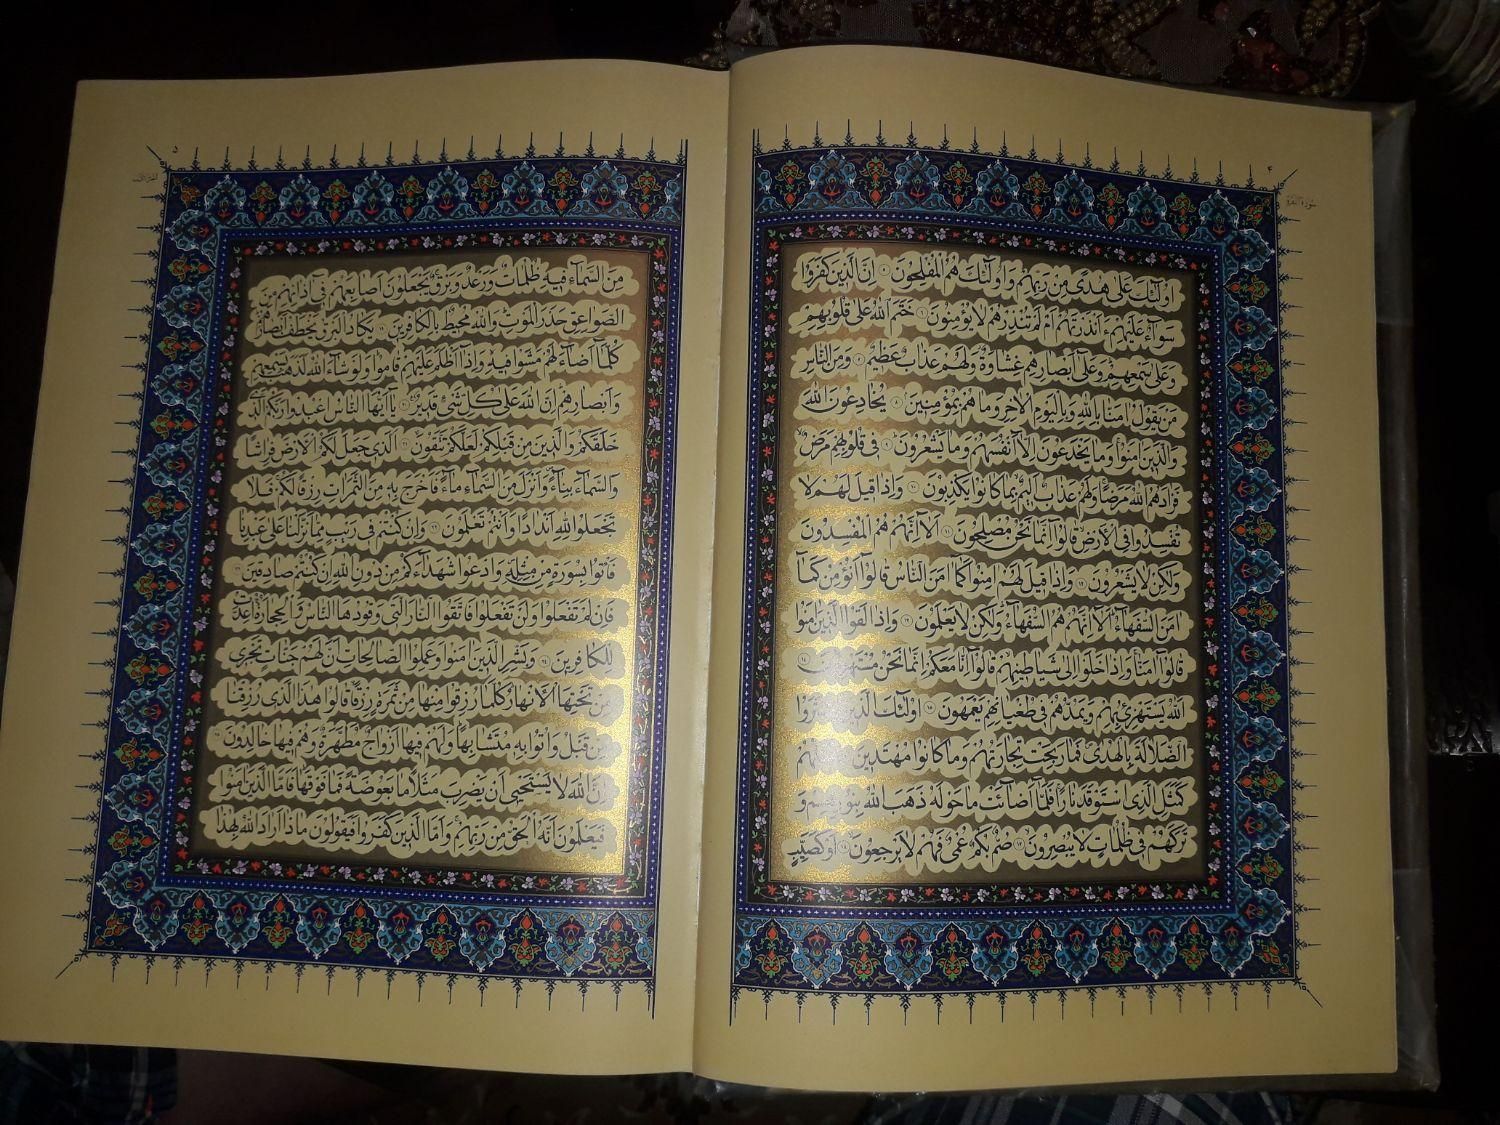 ٤
سورة البقرة
اُولٰئِكَ عَلٰى هُدًى مِنْ رَبِّهِمْ وَاُولٰئِكَ هُمُ الْمُفْلِحُونَ ٥ اِنَّ الَّذِينَ كَفَرُوا
سَوَآءٌ عَلَيْهِمْ ءَاَنْذَرْتَهُمْ اَمْ لَمْ تُنْذِرْهُمْ لَا يُؤْمِنُونَ ٦ خَتَمَ اللّٰهُ عَلٰى قُلُوبِهِمْ
وَعَلٰى سَمْعِهِمْ وَعَلٰٓى اَبْصَارِهِمْ غِشَاوَةٌ وَلَهُمْ عَذَابٌ عَظِيمٌ ٧ وَمِنَ النَّاسِ
مَنْ يَقُولُ اٰمَنَّا بِاللّٰهِ وَبِالْيَوْمِ الْاٰخِرِ وَمَا هُمْ بِمُؤْمِنِينَ ٨ يُخَادِعُونَ اللّٰهَ
وَالَّذِينَ اٰمَنُوا وَمَا يَخْدَعُونَ اِلَّٓا اَنْفُسَهُمْ وَمَا يَشْعُرُونَ ٩ فِي قُلُوبِهِمْ مَرَضٌ
فَزَادَهُمُ اللّٰهُ مَرَضًا وَلَهُمْ عَذَابٌ اَلِيمٌ بِمَا كَانُوا يَكْذِبُونَ ١٠ وَاِذَا قِيلَ لَهُمْ لَا
تُفْسِدُوا فِي الْاَرْضِ قَالُٓوا اِنَّمَا نَحْنُ مُصْلِحُونَ ١١ اَلَٓا اِنَّهُمْ هُمُ الْمُفْسِدُونَ
وَلٰكِنْ لَا يَشْعُرُونَ ١٢ وَاِذَا قِيلَ لَهُمْ اٰمِنُوا كَمَٓا اٰمَنَ النَّاسُ قَالُٓوا اَنُؤْمِنُ كَمَٓا
اٰمَنَ السُّفَهَآءُ اَلَٓا اِنَّهُمْ هُمُ السُّفَهَآءُ وَلٰكِنْ لَا يَعْلَمُونَ ١٣ وَاِذَا لَقُوا الَّذِينَ اٰمَنُوا
قَالُٓوا اٰمَنَّا وَاِذَا خَلَوْا اِلٰى شَيَاطِينِهِمْ قَالُٓوا اِنَّا مَعَكُمْ اِنَّمَا نَحْنُ مُسْتَهْزِؤُنَ ١٤
اَللّٰهُ يَسْتَهْزِئُ بِهِمْ وَيَمُدُّهُمْ فِي طُغْيَانِهِمْ يَعْمَهُونَ ١٥ اُولٰئِكَ الَّذِينَ اشْتَرَوُا
الضَّلَالَةَ بِالْهُدٰى فَمَا رَبِحَتْ تِجَارَتُهُمْ وَمَا كَانُوا مُهْتَدِينَ ١٦ مَثَلُهُمْ
كَمَثَلِ الَّذِي اسْتَوْقَدَ نَارًا فَلَمَّٓا اَضَآءَتْ مَا حَوْلَهُ ذَهَبَ اللّٰهُ بِنُورِهِمْ وَ
تَرَكَهُمْ فِي ظُلُمَاتٍ لَا يُبْصِرُونَ ١٧ صُمٌّ بُكْمٌ عُمْيٌ فَهُمْ لَا يَرْجِعُونَ ١٨ اَوْ كَصَيِّبٍ
٥
مِنَ السَّمَآءِ فِيهِ ظُلُمَاتٌ وَرَعْدٌ وَبَرْقٌ يَجْعَلُونَ اَصَابِعَهُمْ فِٓي اٰذَانِهِمْ مِنَ
الصَّوَاعِقِ حَذَرَ الْمَوْتِ وَاللّٰهُ مُحِيطٌ بِالْكَافِرِينَ ١٩ يَكَادُ الْبَرْقُ يَخْطَفُ اَبْصَارَهُمْ
كُلَّمَٓا اَضَآءَ لَهُمْ مَشَوْا فِيهِ وَاِذَٓا اَظْلَمَ عَلَيْهِمْ قَامُوا وَلَوْ شَآءَ اللّٰهُ لَذَهَبَ بِسَمْعِهِمْ
وَاَبْصَارِهِمْ اِنَّ اللّٰهَ عَلٰى كُلِّ شَيْءٍ قَدِيرٌ ٢٠ يَٓا اَيُّهَا النَّاسُ اعْبُدُوا رَبَّكُمُ الَّذِي
خَلَقَكُمْ وَالَّذِينَ مِنْ قَبْلِكُمْ لَعَلَّكُمْ تَتَّقُونَ ٢١ اَلَّذِي جَعَلَ لَكُمُ الْاَرْضَ فِرَاشًا
وَالسَّمَآءَ بِنَآءً وَاَنْزَلَ مِنَ السَّمَآءِ مَآءً فَاَخْرَجَ بِهِ مِنَ الثَّمَرَاتِ رِزْقًا لَكُمْ فَلَا
تَجْعَلُوا لِلّٰهِ اَنْدَادًا وَاَنْتُمْ تَعْلَمُونَ ٢٢ وَاِنْ كُنْتُمْ فِي رَيْبٍ مِمَّا نَزَّلْنَا عَلٰى عَبْدِنَا
فَأْتُوا بِسُورَةٍ مِنْ مِثْلِهِ وَادْعُوا شُهَدَآءَكُمْ مِنْ دُونِ اللّٰهِ اِنْ كُنْتُمْ صَادِقِينَ ٢٣
فَاِنْ لَمْ تَفْعَلُوا وَلَنْ تَفْعَلُوا فَاتَّقُوا النَّارَ الَّتِي وَقُودُهَا النَّاسُ وَالْحِجَارَةُ اُعِدَّتْ
لِلْكَافِرِينَ ٢٤ وَبَشِّرِ الَّذِينَ اٰمَنُوا وَعَمِلُوا الصَّالِحَاتِ اَنَّ لَهُمْ جَنَّاتٍ تَجْرِي
مِنْ تَحْتِهَا الْاَنْهَارُ كُلَّمَا رُزِقُوا مِنْهَا مِنْ ثَمَرَةٍ رِزْقًا قَالُوا هٰذَا الَّذِي رُزِقْنَا
مِنْ قَبْلُ وَاُتُوا بِهِ مُتَشَابِهًا وَلَهُمْ فِيهَٓا اَزْوَاجٌ مُطَهَّرَةٌ وَهُمْ فِيهَا خَالِدُونَ ٢٥
اِنَّ اللّٰهَ لَا يَسْتَحْيِٓي اَنْ يَضْرِبَ مَثَلًا مَا بَعُوضَةً فَمَا فَوْقَهَا فَاَمَّا الَّذِينَ اٰمَنُوا
فَيَعْلَمُونَ اَنَّهُ الْحَقُّ مِنْ رَبِّهِمْ وَاَمَّا الَّذِينَ كَفَرُوا فَيَقُولُونَ مَاذَٓا اَرَادَ اللّٰهُ بِهٰذَا